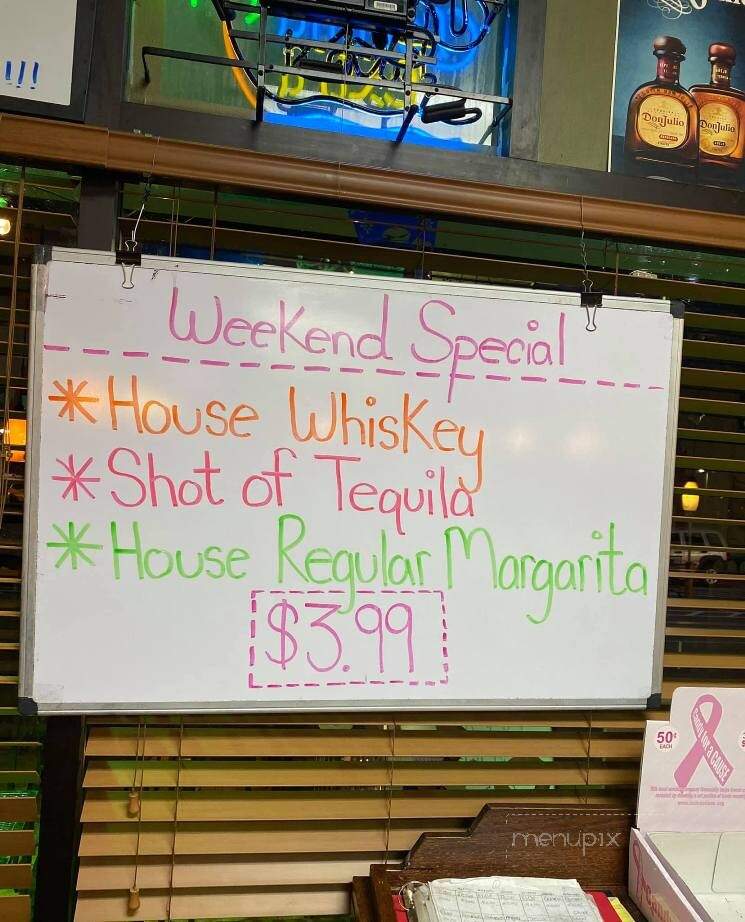 !!!
Don Julio
Don Julio
Weekend Special
* House Whiskey
* Shot of Tequila
* House Regular Margarita
$3.99
50¢
EACH
Candy for a CAUSE
menupix